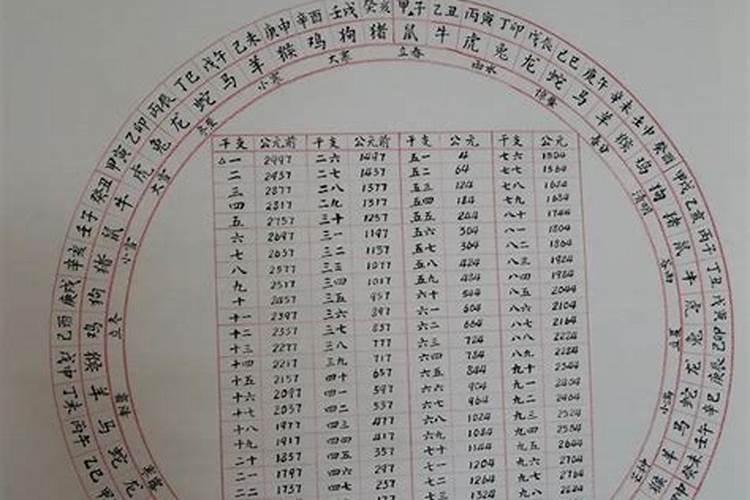 乙巳 丙午 丁未 戊申 己酉 庚戌 辛亥 壬子 癸丑 甲寅 乙卯 丙辰 丁巳 戊午 己未 庚申 辛酉 壬戌 癸亥 甲子 乙丑 丙寅 丁卯 戊辰 己巳 庚午 辛未 壬申 癸酉 甲戌 乙亥 丙子 丁丑 戊寅 己卯 庚辰 辛巳 壬午 癸未 甲申
龙 蛇 马 羊 猴 鸡 狗 猪 鼠 牛 虎 兔 龙 蛇 马 羊 猴 鸡 狗 猪 鼠 牛 虎 兔 龙 蛇 马 羊 猴 鸡 狗 猪 鼠 牛 虎 兔 龙 蛇 马 羊 猴
霜降 立冬 小雪 大雪 冬至 小寒 大寒 立春 雨水 惊蛰 春分 清明 谷雨 立夏 小满 芒种
干支 公元前 干支 公元前 干支 公元 干支 公元
一 2997 二六 1497 五一 4 七六 1504
二 2937 二七 1437 五二 64 七七 1564
三 2877 二八 1377 五三 124 七八 1624
四 2817 二九 1317 五四 184 七九 1684
五 2757 三十 1257 五五 244 八十 1744
六 2697 三一 1197 五六 304 八一 1804
七 2637 三二 1137 五七 364 八二 1864
八 2577 三三 1077 五八 424 八三 1924
九 2517 三四 1017 五九 484 八四 1984
十 2457 三五 957 六十 544 八五 2044
十一 2397 三六 897 六一 604 八六 2104
十二 2337 三七 837 六二 664 八七 2164
十三 2277 三八 777 六三 724 八八 2224
十四 2217 三九 717 六四 784 八九 2284
十五 2157 四十 657 六五 844 九十 2344
十六 2097 四一 597 六六 904 九一 2404
十七 2037 四二 537 六七 964 九二 2464
十八 1977 四三 477 六八 1024 九三 2524
十九 1917 四四 417 六九 1084 九四 2584
二十 1857 四五 357 七十 1144 九五 2644
二一 1797 四六 297 七一 1204 九六 2704
二二 1737 四七 237 七二 1264 九七 2764
177 七三 1324